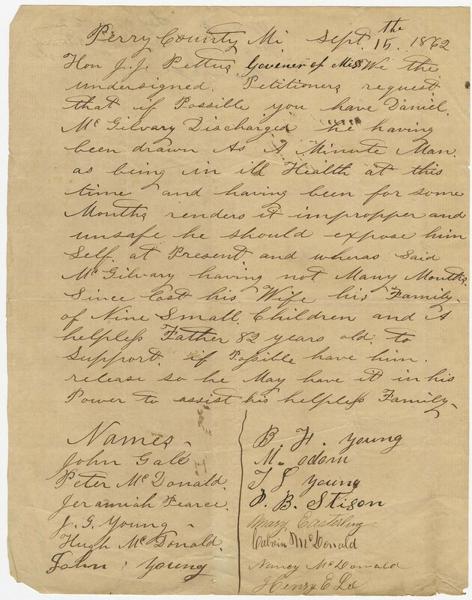 Perry County, Mi, Sept 15th 1862
Hon J. J. Pettus, Govener of Miss We the
undersigned Petitioners request
that if Possible you have Daniel
McGilvary Discharged he having
been drawn As A Minute Man.
as being in ill Health at this
time and having been for some
Months renders it impropper and
unsafe he should expose him
Self. at Present and wheras Said
McGilvary having not Many Months
Since lost his Wife his Family
of Nine Small Children and A
helpless Father 82 years old. to
Support. if Possible have him.
release so he May have it in his
Power to assist his helpless Family
Names
John Gale
Peter McDonald
Jeramiah Pearce.
J. G. Young
Hugh McDonald.
John Young
B. H. Young
M. odom
T J Young
D. B. Stison
Mary Easterling
Calvin McDonald
Nancy McDonald
Henry E